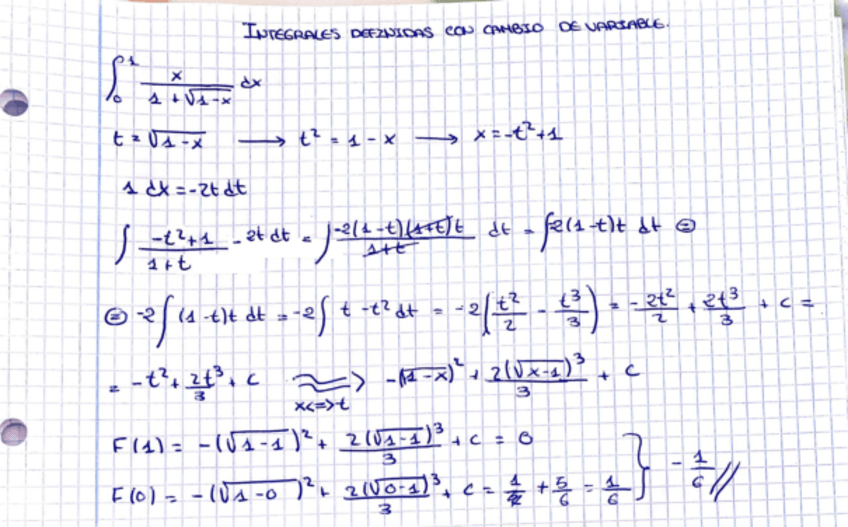 INTEGRALES DEFINIDAS CON CAMBIO DE VARIABLE.
∫₀¹ x/(1+√(1-x)) dx
t = √(1-x) → t² = 1 - x → x = -t²+1
1 dx = -2t dt
∫ (-t²+1)/(1+t) - 2t dt = ∫ (-2(1-t)(1+t)t)/(1+t) dt = ∫-2(1-t)t dt ⊜
⊜ -2∫(1-t)t dt = -2∫ t - t² dt = -2(t²/2 - t³/3) = -2t²/2 + 2t³/3 + c =
= -t² + 2t³/3 + c ⇒ x<=>t -(√(1-x))² + 2(√(x-1))³/3 + c
F(1) = -(√(1-1))² + 2(√(1-1))³/3 + c = 0
F(0) = -(√(1-0))² + 2(√(0-1))³/3 + c = 1/2 + 5/6 = 1/6 } - 1/6 //